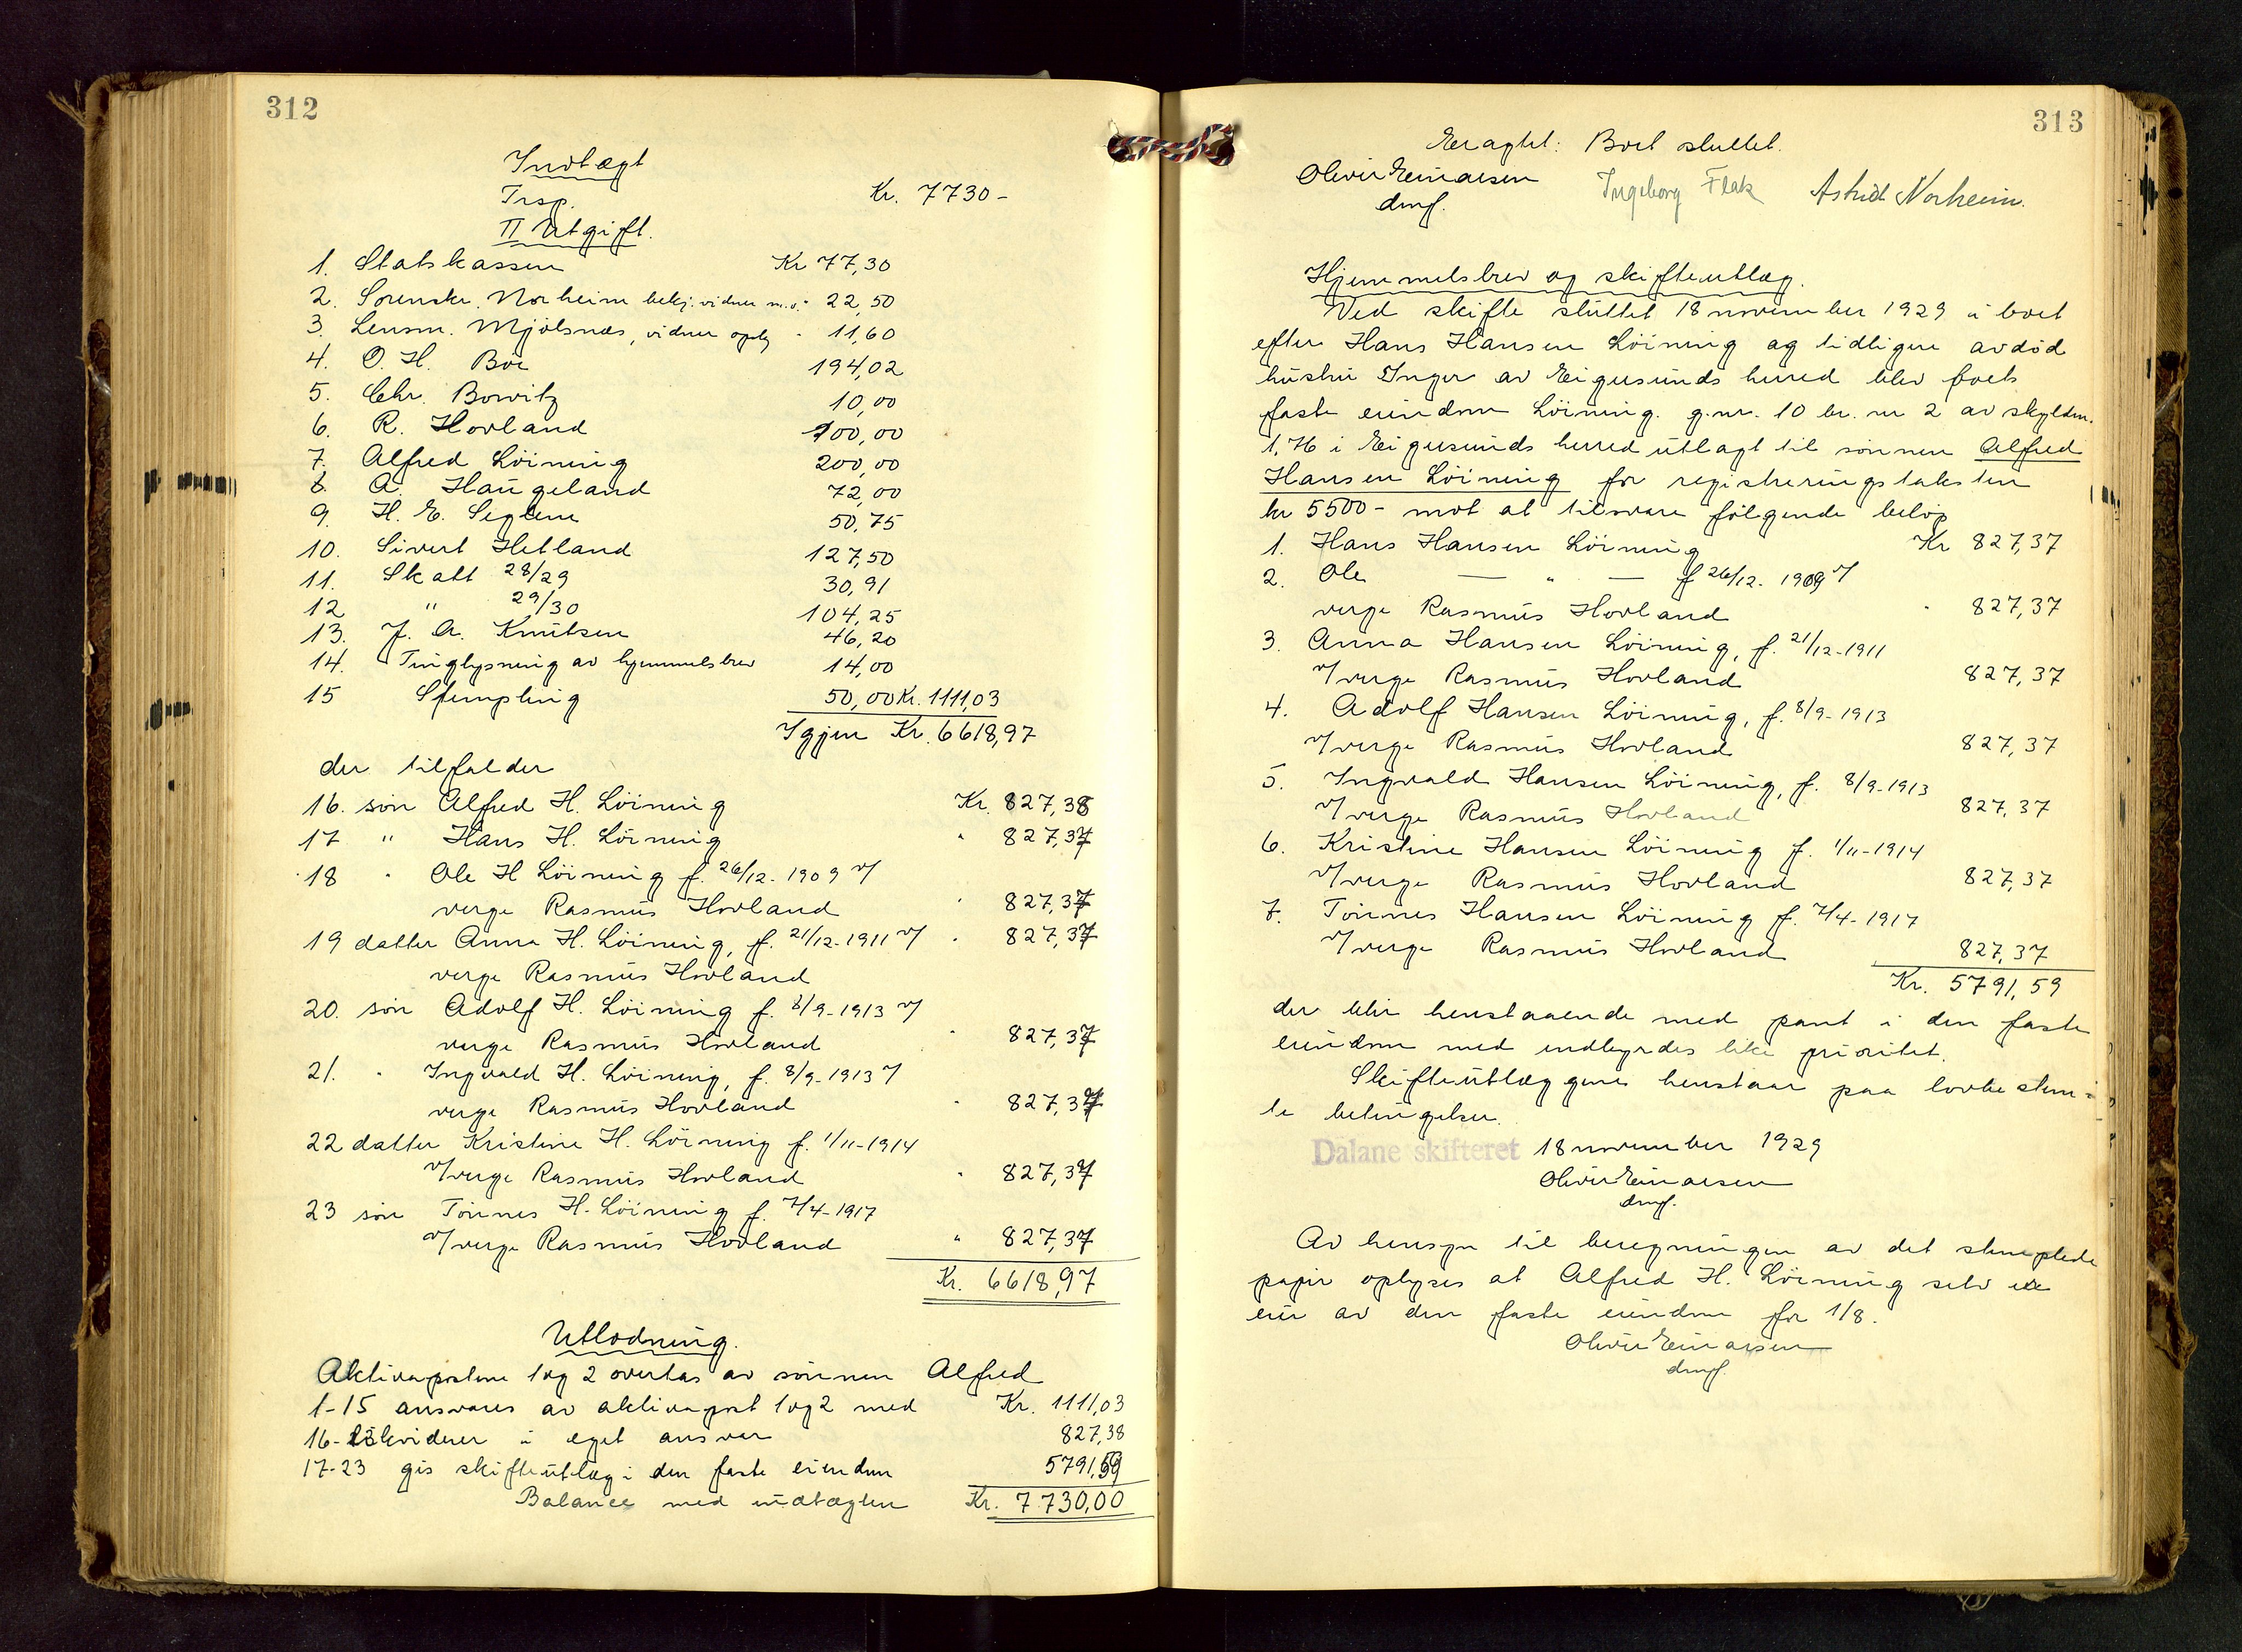 312
Indtægt
Trsp. Kr. 7730-
II Utgift.
1. Statskassen Kr 77,30
2. Sorenskr. Norheim bekj. vidner m.v. " 22,50
3. Lensm. Mjølsnæs, vidner oplg - 11,60
4. O. H. Böe 194,02
5. Chr. Bowitz 10,00
6. R. Hovland 100,00
7. Alfred Löining 200,00
8. A. Haugeland 72,00
9. H. E. Seglem 50,75
10. Sivert Hetland 127,50
11. Skatt 28/29 30,91
12 " 29/30 104,25
13. J. A. Knutsen 46,20
14. Tinglysning av hjemmelsbrev 14,00
15 Stempling 50,00 Kr. 1111,03
Igjen Kr. 6618,97
der tilfalder
16. sön Alfred H. Löining Kr. 827,38
17 " Hans H. Löining " 827,37
18 " Ole H Löining f. 26/12-1909 v/
verge Rasmus Hovland " 827,37
19 datter Anna H. Löining, f. 21/12-1911 v/ " 827,37
verge Rasmus Hovland
20. sön Adolf H. Löining f. 8/9-1913 v/
verge Rasmus Hovland " 827,37
21. " Ingvald H. Löining, f. 8/9-1913 v/
verge Rasmus Hovland " 827,37
22 datter Kristine H. Löining f. 1/11-1914
v/verge Rasmus Hovland " 827,37
23 sön Tönnes H. Löining f. 7/4-1917
v/verge Rasmus Hovland " 827,37
Kr. 6618,97
Utlodning.
Aktivapostene 1 og 2 overtas av sönnen Alfred
1-15 ansvares av aktivapost 1 og 2 med Kr. 1111,03
16- likviderer i eget ansvar 827,38
17-23 gis skifteutlæg i den faste eiendom 5791,59
Balance med indtægten Kr. 7730,00
313
Eragtet: Boet sluttet.
Oliver Einarsen Ingeborg Flak Astrid Norheim.
dmf.
Hjemmelsbrev og skifteutlæg.
Ved skifte sluttet 18 november 1929 i boet
efter Hans Hansen Löining og tidligere avdöd
hustru Inger av Eigersunds herred blev boets
faste eiendom Löining. g.nr. 10 br. nr 2 av skyldm.
1,76 i Eigersunds herred utlagt til sönnen Alfred
Hansen Löining for registreringstaksten
kr 5500- mot at tilsvare fölgende belöp
1. Hans Hansen Löining Kr 827,37
2. Ole — " — f 26/12-1909 v/
verge Rasmus Hovland " 827,37
3. Anna Hansen Löining, f. 21/12-1911
v/verge Rasmus Hovland 827,37
4. Adolf Hansen Löining, f. 8/9-1913
v/verge Rasmus Hovland 827,37
5. Ingvald Hansen Löining, f. 8/9-1913
v/verge Rasmus Hovland 827,37
6. Kristine Hansen Löining f. 1/11-1914
v/verge Rasmus Hovland 827,37
7. Tönnes Hansen Löining f. 7/4-1917
v/verge Rasmus Hovland 827,37
Kr. 5791,59
der blir henstaaende med pant i den faste
eiendom med indbyrdes like prioritet.
Skifteutlæggene henstaar paa lovbestem-
te betingelser.
Dalane skifteret 18 november 1929
Oliver Einarsen
dmf.
Av hensyn til beregningen av det stemplede
papir oplyses at Alfred H. Löining selv er
eier av den faste eiendom for 1/8.
Oliver Einarsen
dmf.